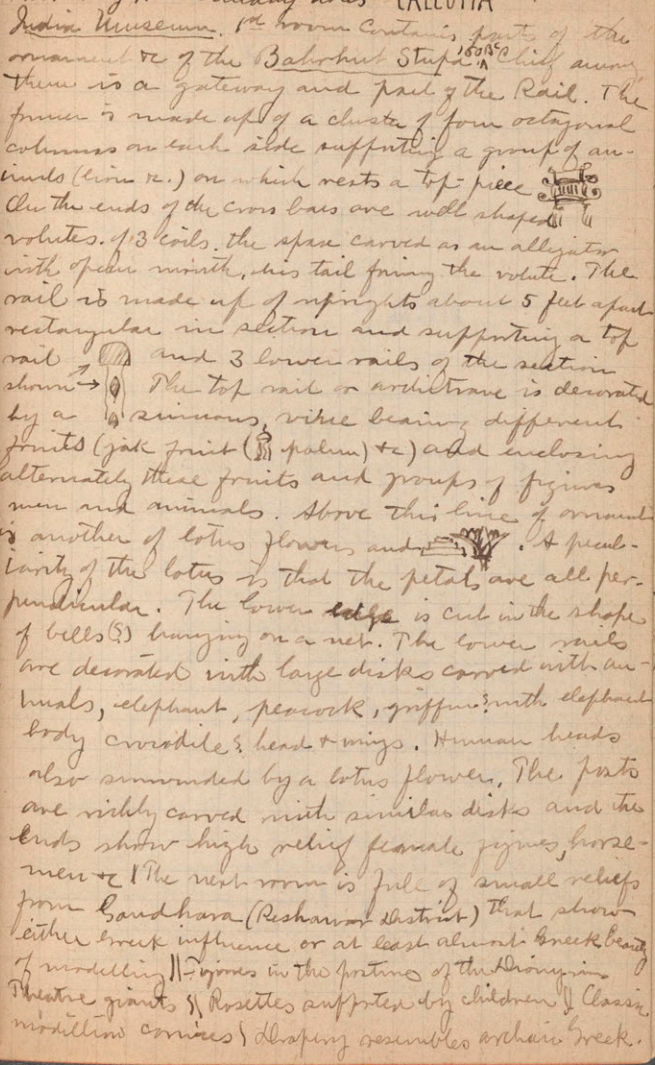 CALCUTTA
India Museum. 1st room contains part of the
ornament &c of the Bahrhut Stupa 150 BC. Chief among
them is a gateway and part of the Rail. The
former is made up of a cluster of four octagonal
columns on each side supporting a group of an-
imals (lion &c.) on which rests a top-piece
On the ends of the cross bars are well shaped
volutes of 3 coils. the space carved as an alligator
with open mouth, his tail forming the volute. The
rail is made up of uprights about 5 feet apart
rectangular in section and supporting a top
rail and 3 lower rails of the section
shown → The top rail or architrave is decorated
by a sinuous, vine bearing different
fruits (jak fruit ( palm) &c) and enclosing
alternately these fruits and groups of figures
men and animals. Above this line of ornament
is another of lotus flowers and . A pecul-
iarity of the lotus is that the petals are all per-
pendicular. The lower edge is cut in the shape
of bells (?) hanging on a net. The lower rails
are decorated with large disks carved with an-
imals, elephant, peacock, griffins? with elephant
body crocodile? head & wings. Human heads
also surrounded by a lotus flower. The posts
are richly carved with similar disks and the
ends show high relief female figures, horse-
men &c | The next room is full of small reliefs
from Gandhara (Peshawar District) that show
either Greek influence or at least almost Greek beauty
of modelling || Figures in the posture of the Dionysian
Theatre giants || Rosettes supported by children || Classic
modillion cornices | Drapery resembles archaic Greek.